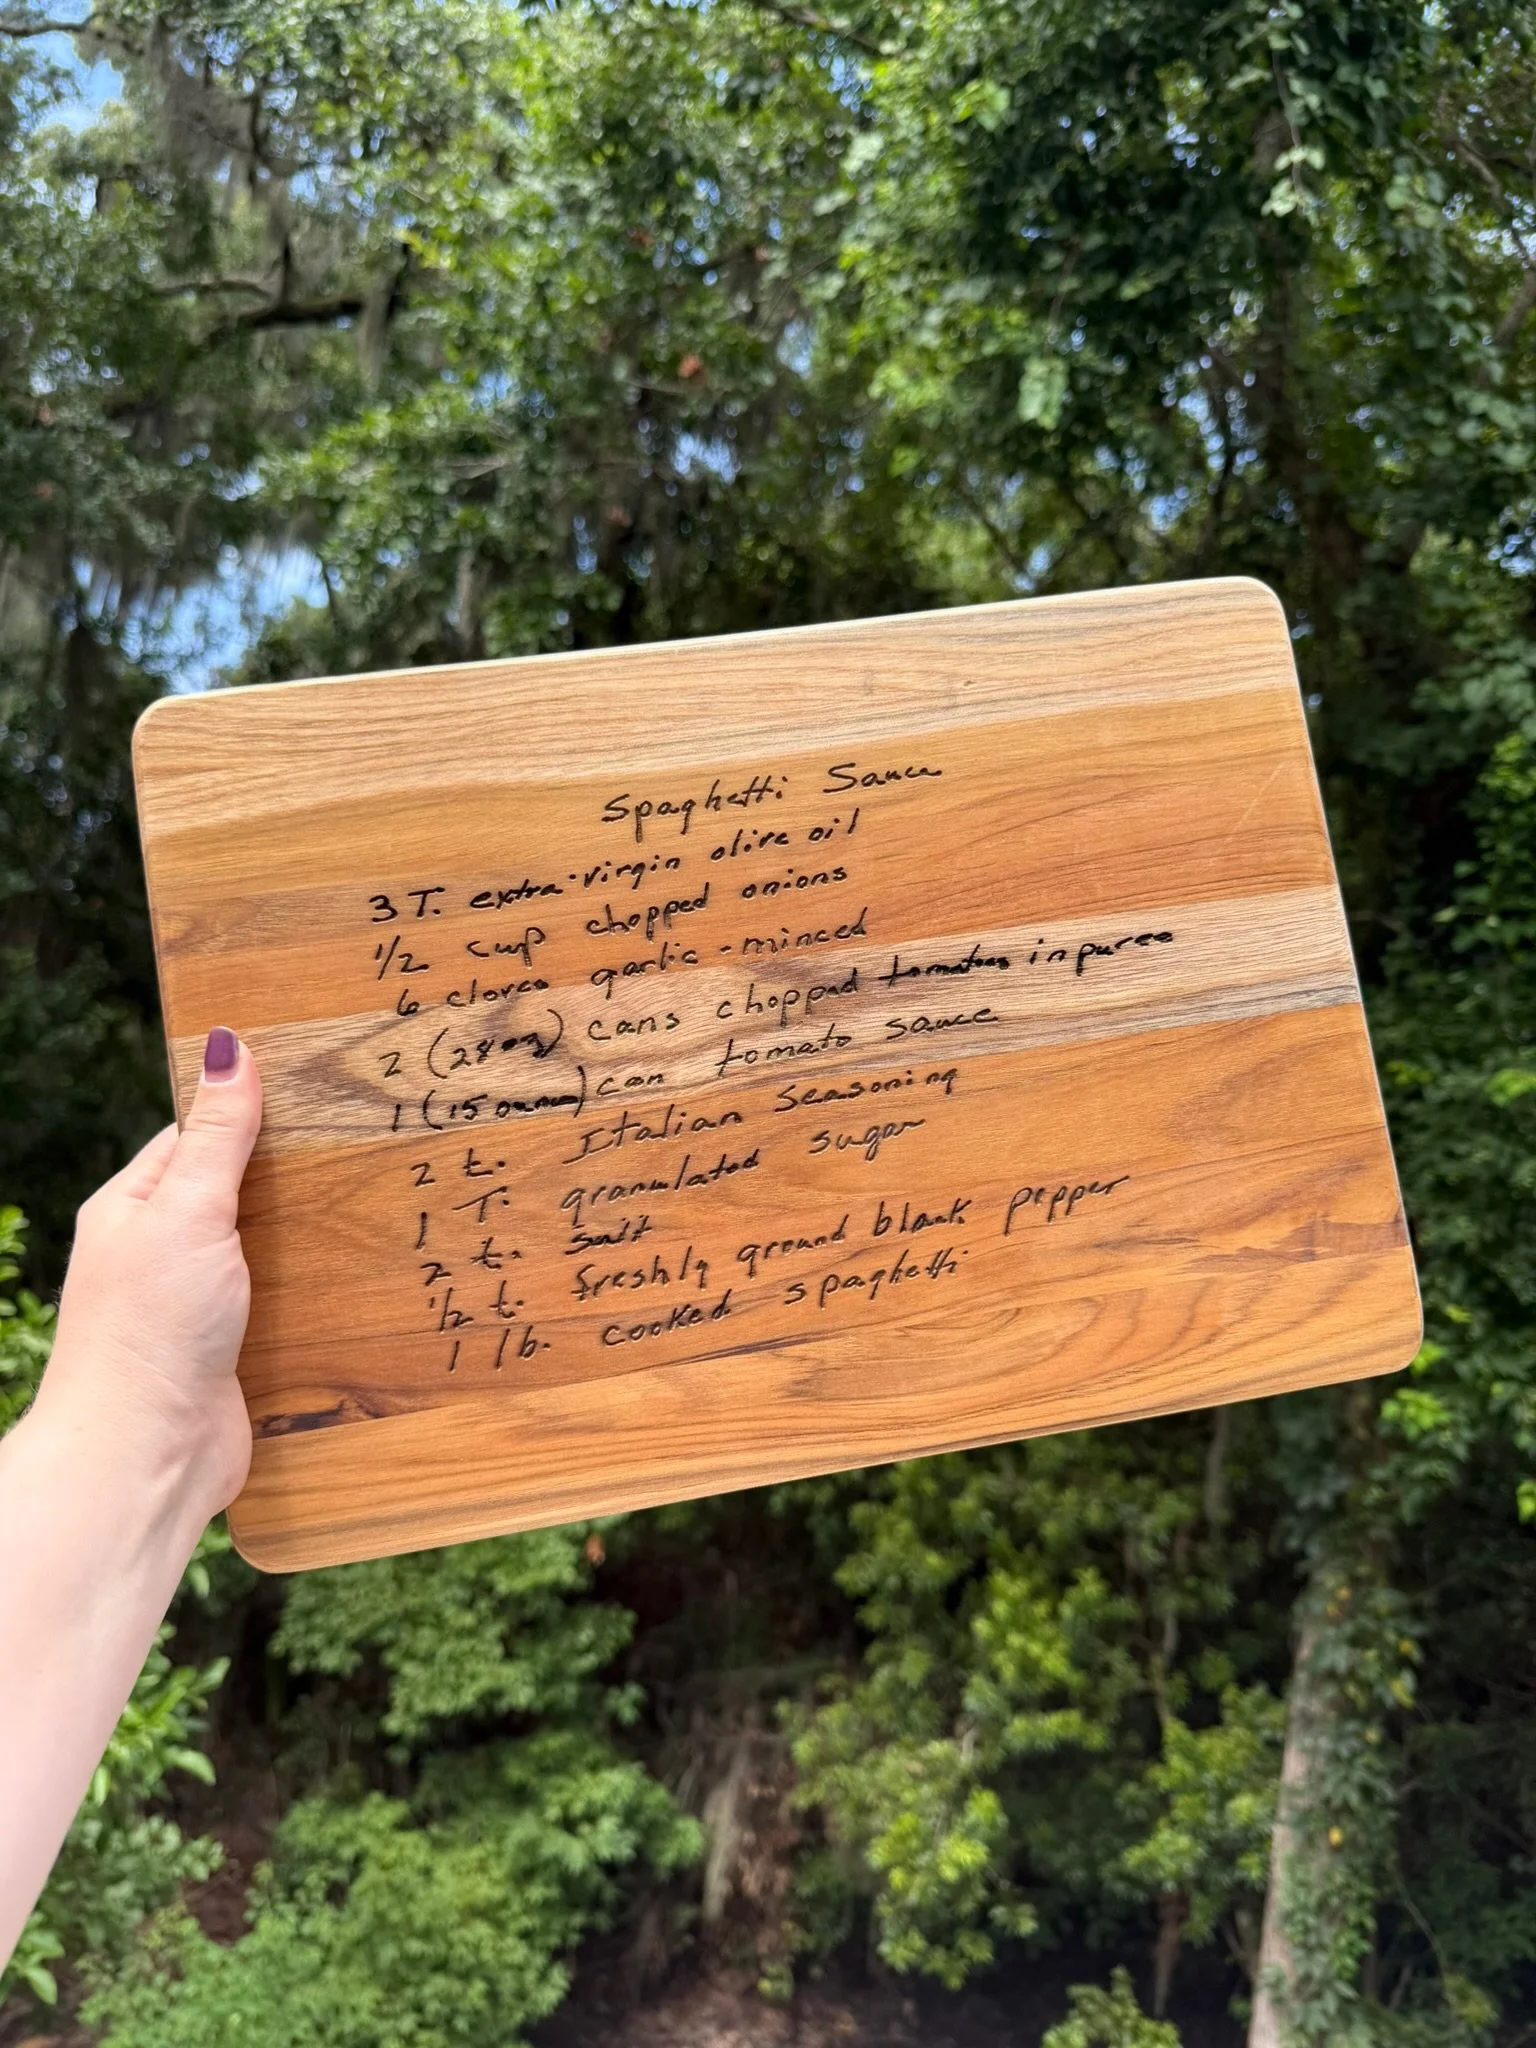 Spaghetti Sauce
3 T. extra-virgin olive oil
1/2 cup chopped onions
6 cloves garlic - minced
2 (28 oz) cans chopped tomatoes in puree
1 (15 ounce) can tomato sauce
2 t. Italian Seasoning
1 T. granulated sugar
2 t. salt
1/2 t. freshly ground black pepper
1 lb. cooked spaghetti